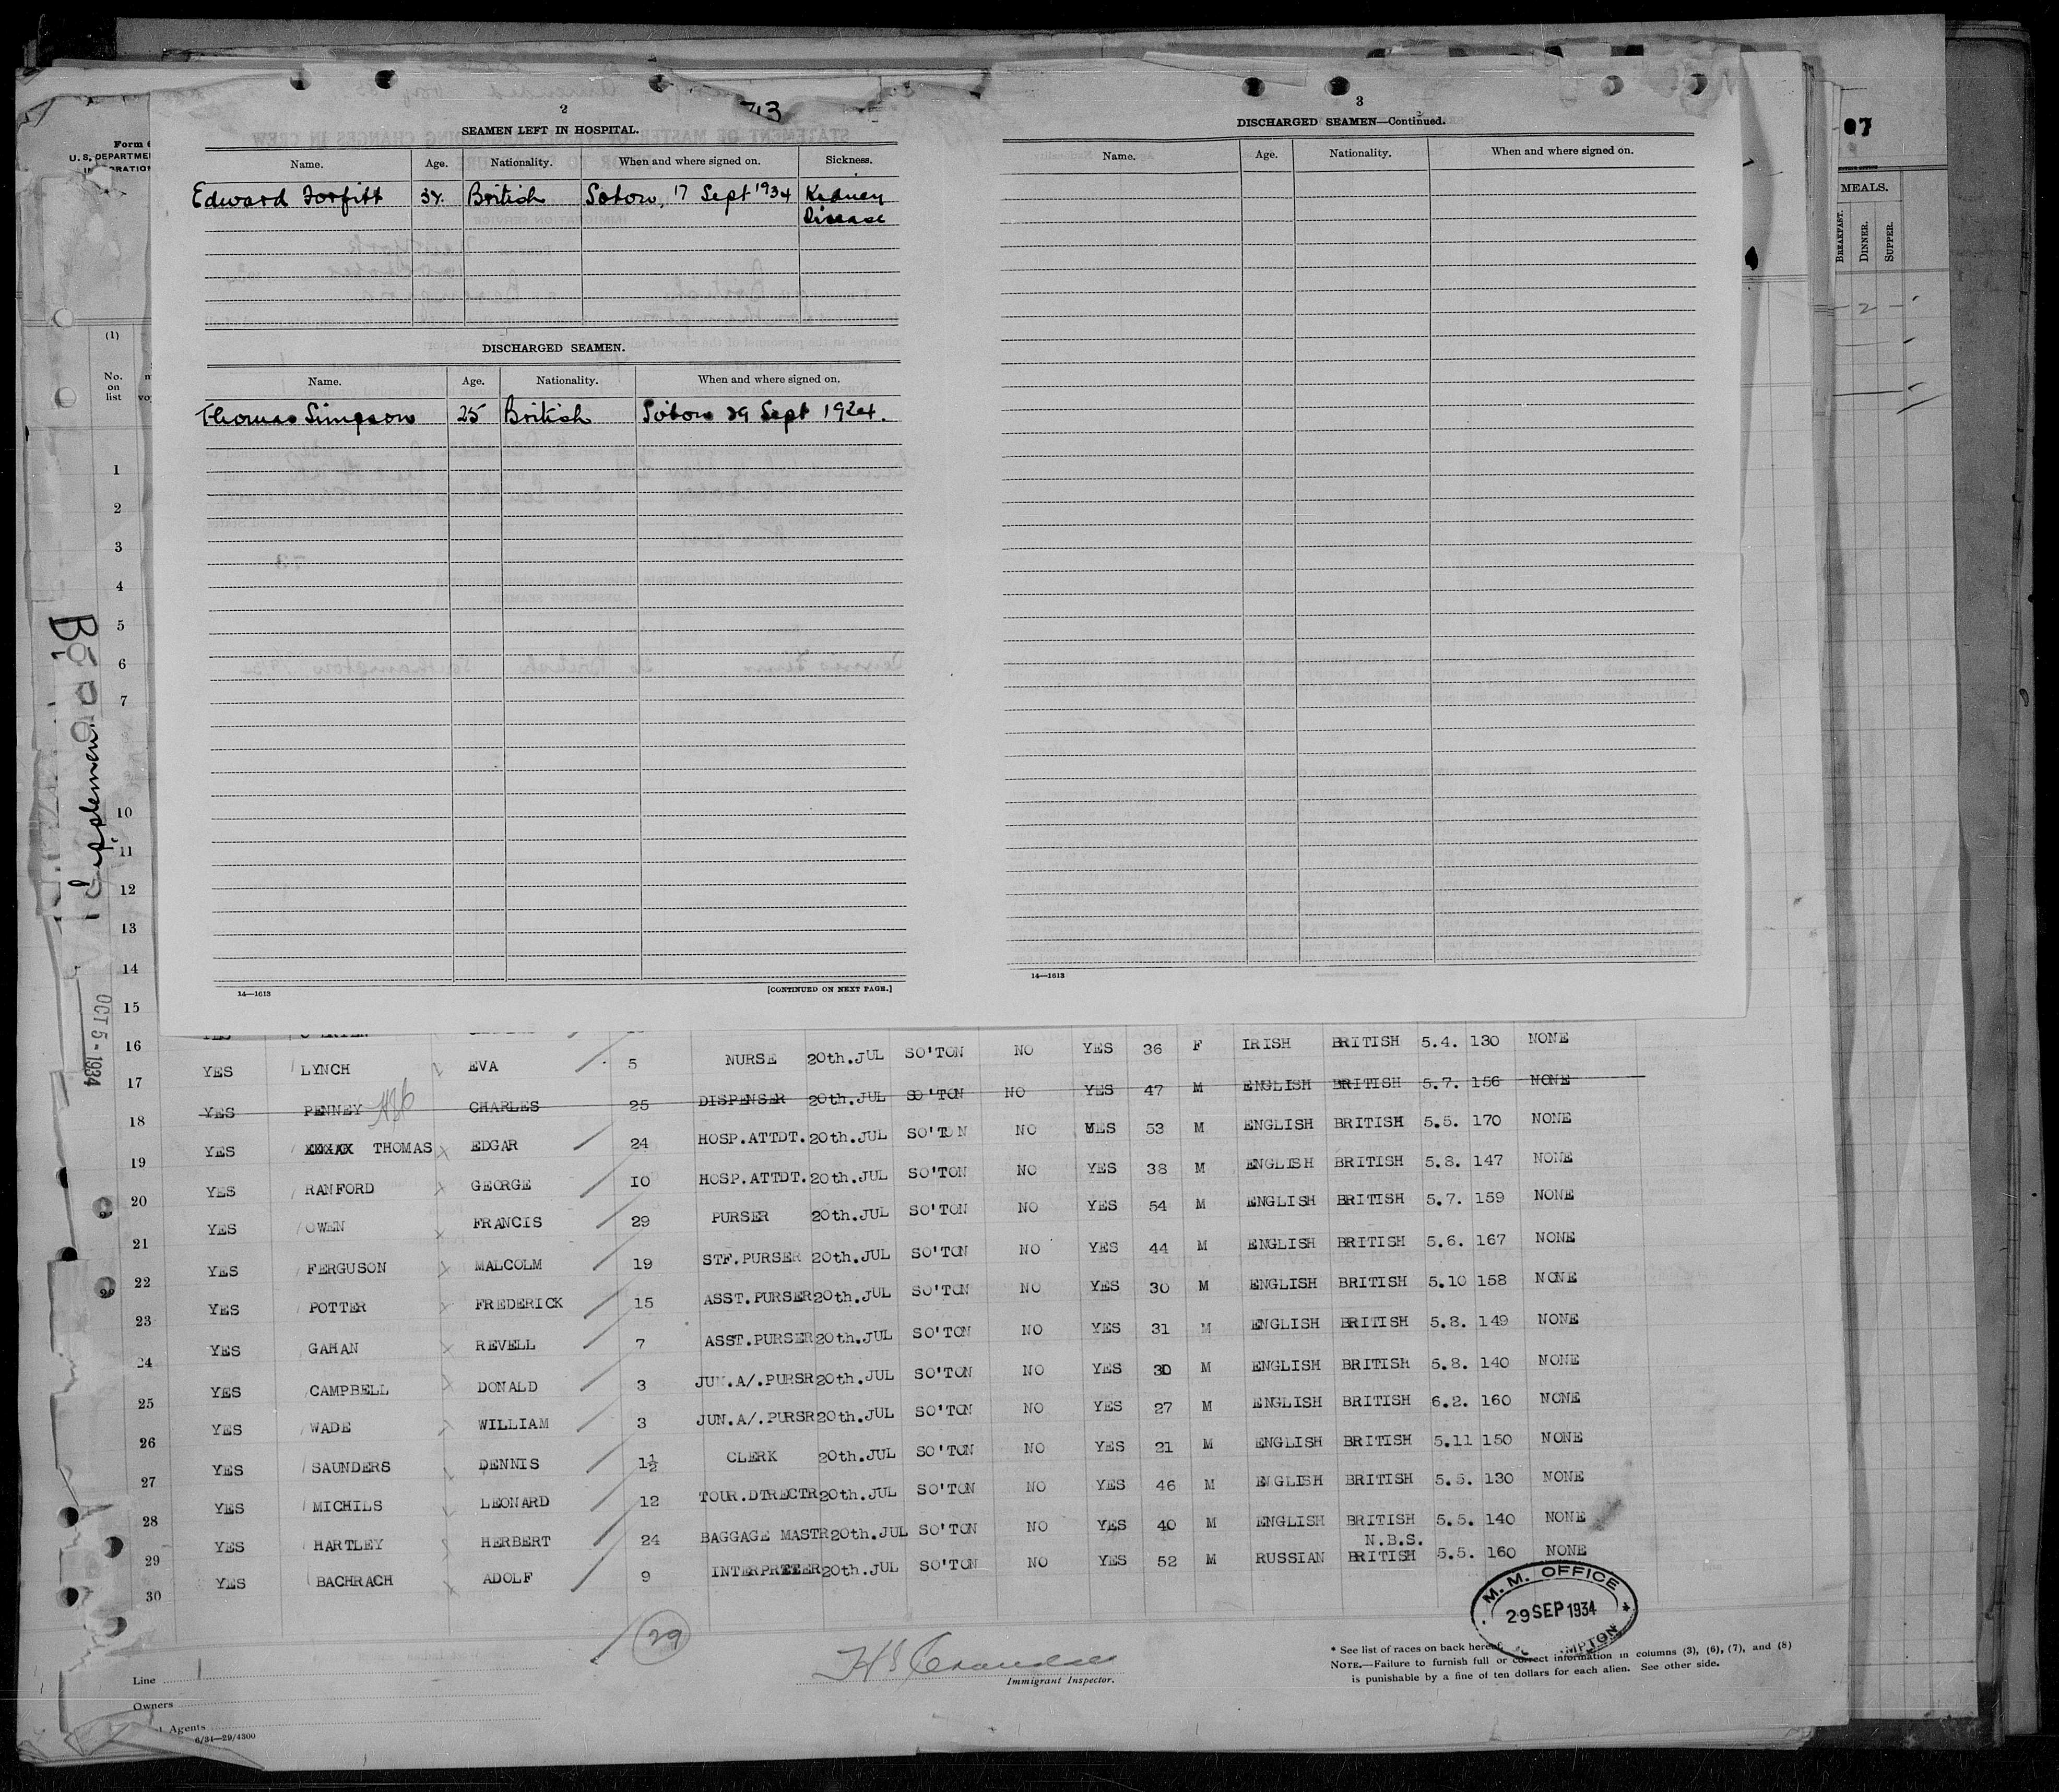 Form
U. S. DEPARTME
2
713
SEAMEN LEFT IN HOSPITAL.
Name. Age. Nationality. When and where signed on. Sickness.
Edward Torfitt 34. British Soton, 17 Sept 1934 Kedney
Disease
DISCHARGED SEAMEN.
Name. Age. Nationality. When and where signed on.
Thomas Simpson 25 British Soton 29 Sept 1934.
14—1613 [CONTINUED ON NEXT PAGE.]
3
DISCHARGED SEAMEN—Continued.
Name. Age. Nationality. When and where signed on.
14—1613
07
MEALS.
BREAKFAST. DINNER. SUPPER.
2
(1)
No.
on
list
1
2
3
4
5
6
7
10
11
12
13
14
15
OCT 5 - 1934
16
YES LYNCH EVA 5 NURSE 20th.JUL SO'TON NO YES 36 F IRISH BRITISH 5.4. 130 NONE
17
YES PENNEY CHARLES 25 DISPENSER 20th.JUL SO'TON NO YES 47 M ENGLISH BRITISH 5.7. 156 NONE
18
YES THOMAS EDGAR 24 HOSP.ATTDT. 20th.JUL SO'TON NO YES 53 M ENGLISH BRITISH 5.5. 170 NONE
19
YES RANFORD GEORGE 10 HOSP.ATTDT. 20th.JUL SO'TON NO YES 38 M ENGLISH BRITISH 5.8. 147 NONE
20
YES OWEN FRANCIS 29 PURSER 20th.JUL SO'TON NO YES 54 M ENGLISH BRITISH 5.7. 159 NONE
21
YES FERGUSON MALCOLM 19 STF.PURSER 20th.JUL SO'TON NO YES 44 M ENGLISH BRITISH 5.6. 167 NONE
22
YES POTTER FREDERICK 15 ASST.PURSER 20th.JUL SO'TON NO YES 30 M ENGLISH BRITISH 5.10 158 NONE
23
YES GAHAN REVELL 7 ASST.PURSER 20th.JUL SO'TON NO YES 31 M ENGLISH BRITISH 5.8. 149 NONE
24
YES CAMPBELL DONALD 3 JUN.A/.PURSR 20th.JUL SO'TON NO YES 30 M ENGLISH BRITISH 5.8. 140 NONE
25
YES WADE WILLIAM 3 JUN.A/.PURSR 20th.JUL SO'TON NO YES 27 M ENGLISH BRITISH 6.2. 160 NONE
26
YES SAUNDERS DENNIS 1½ CLERK 20th.JUL SO'TON NO YES 21 M ENGLISH BRITISH 5.11 150 NONE
27
YES MICHILS LEONARD 12 TOUR.DTRECTR 20th.JUL SO'TON NO YES 46 M ENGLISH BRITISH 5.5. 130 NONE
28
YES HARTLEY HERBERT 24 BAGGAGE MASTR 20th.JUL SO'TON NO YES 40 M ENGLISH BRITISH 5.5. 140 NONE
29 N.B.S.
YES BACHRACH ADOLF 9 INTERPRETER 20th.JUL SO'TON NO YES 52 M RUSSIAN BRITISH 5.5. 160 NONE
30
M. M. OFFICE
29 SEP 1934
29
Immigrant Inspector.
* See list of races on back hereof
NOTE.—Failure to furnish full or correct information in columns (3), (6), (7), and (8)
is punishable by a fine of ten dollars for each alien. See other side.
Line
Owners
Agents
6/34—29/4300